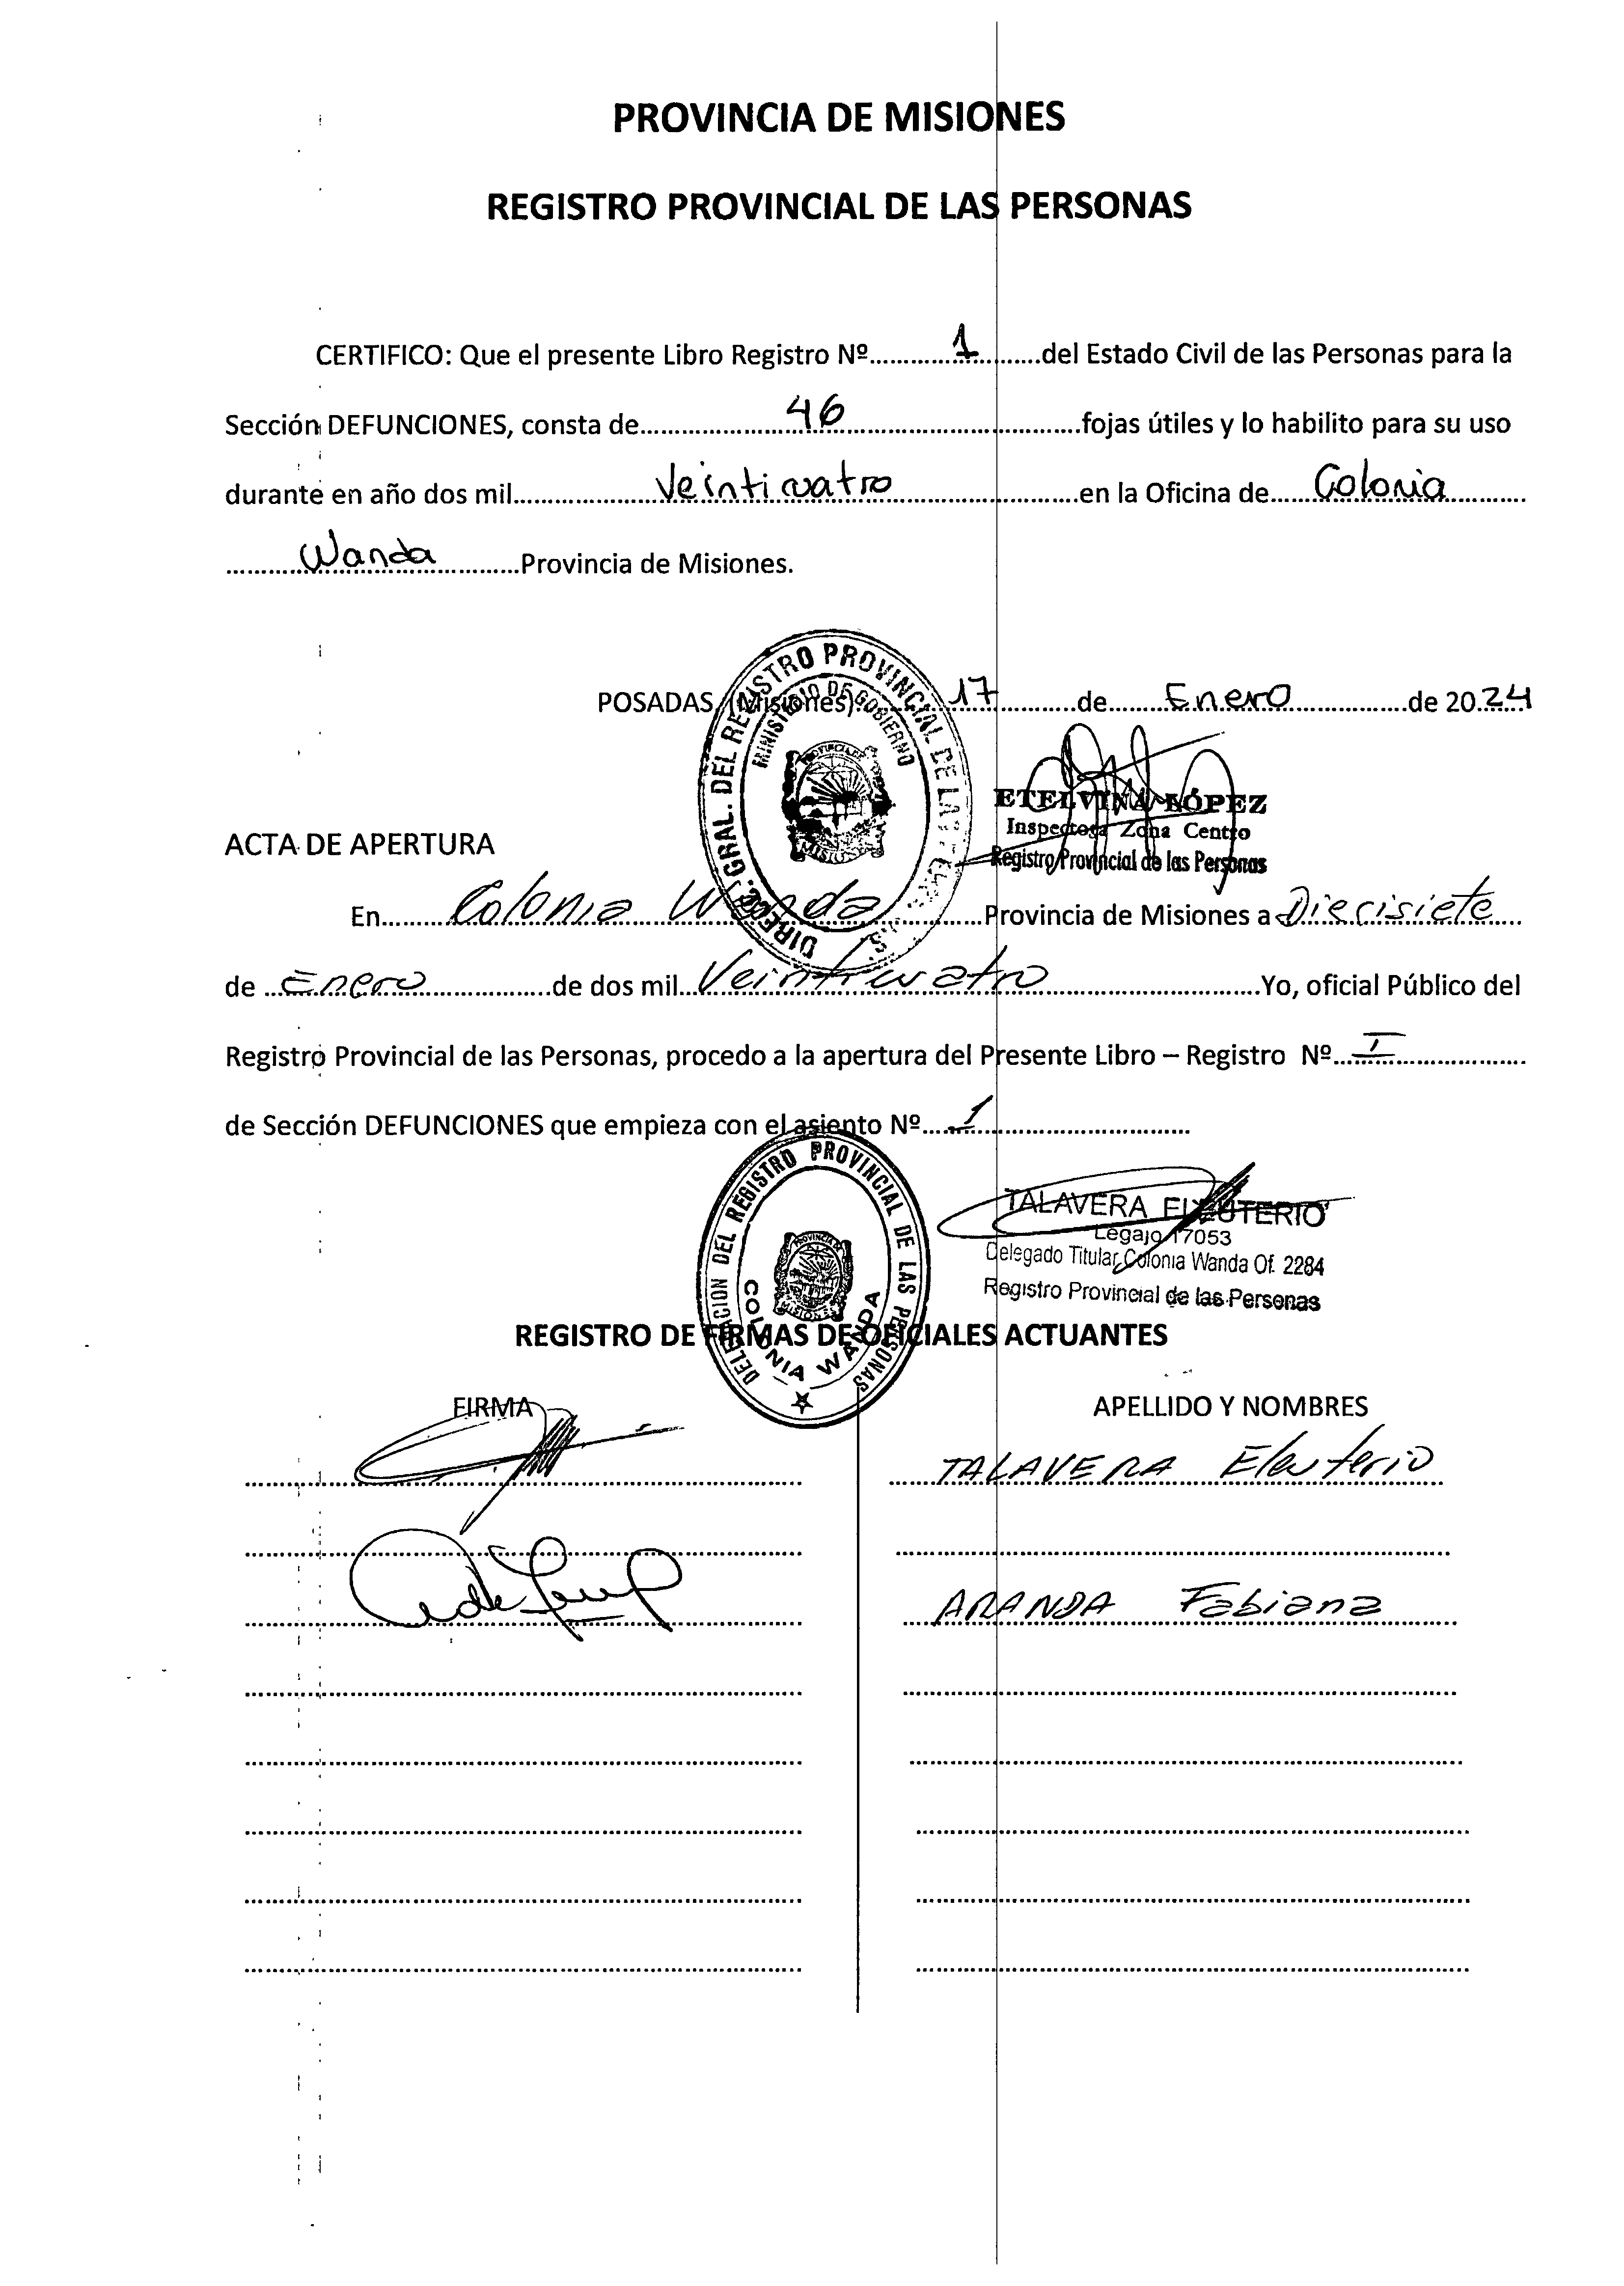 PROVINCIA DE MISIONES
REGISTRO PROVINCIAL DE LAS PERSONAS
CERTIFICO: Que el presente Libro Registro Nº 1 del Estado Civil de las Personas para la
Sección DEFUNCIONES, consta de 46 fojas útiles y lo habilito para su uso
durante en año dos mil Veinticuatro en la Oficina de Colonia
Wanda Provincia de Misiones.
POSADAS, (Misiones) 17 de Enero de 2024
DIRECC. GRAL. DEL REGISTRO PROVINCIAL DE LAS
MINISTERIO DE GOBIERNO
ETELVINA LÓPEZ
Inspectora Zona Centro
Registro Provincial de las Personas
ACTA DE APERTURA
En Colonia Wanda Provincia de Misiones a Diecisiete
de Enero de dos mil Veinticuatro Yo, oficial Público del
Registro Provincial de las Personas, procedo a la apertura del Presente Libro – Registro Nº I
de Sección DEFUNCIONES que empieza con el asiento Nº 1
DELEGACION DEL REGISTRO PROVINCIAL DE LAS PERSONAS
COLONIA WANDA
TALAVERA ELEUTERIO
Legajo 17053
Delegado Titular Colonia Wanda Of. 2284
Registro Provincial de las Personas
REGISTRO DE FIRMAS DE OFICIALES ACTUANTES
FIRMA APELLIDO Y NOMBRES
TALAVERA Eleuterio
ARANDA Fabiana